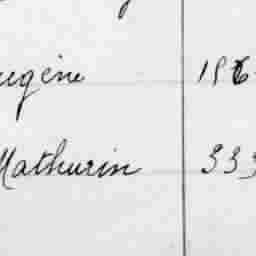 ugène 186
Mathurin 333